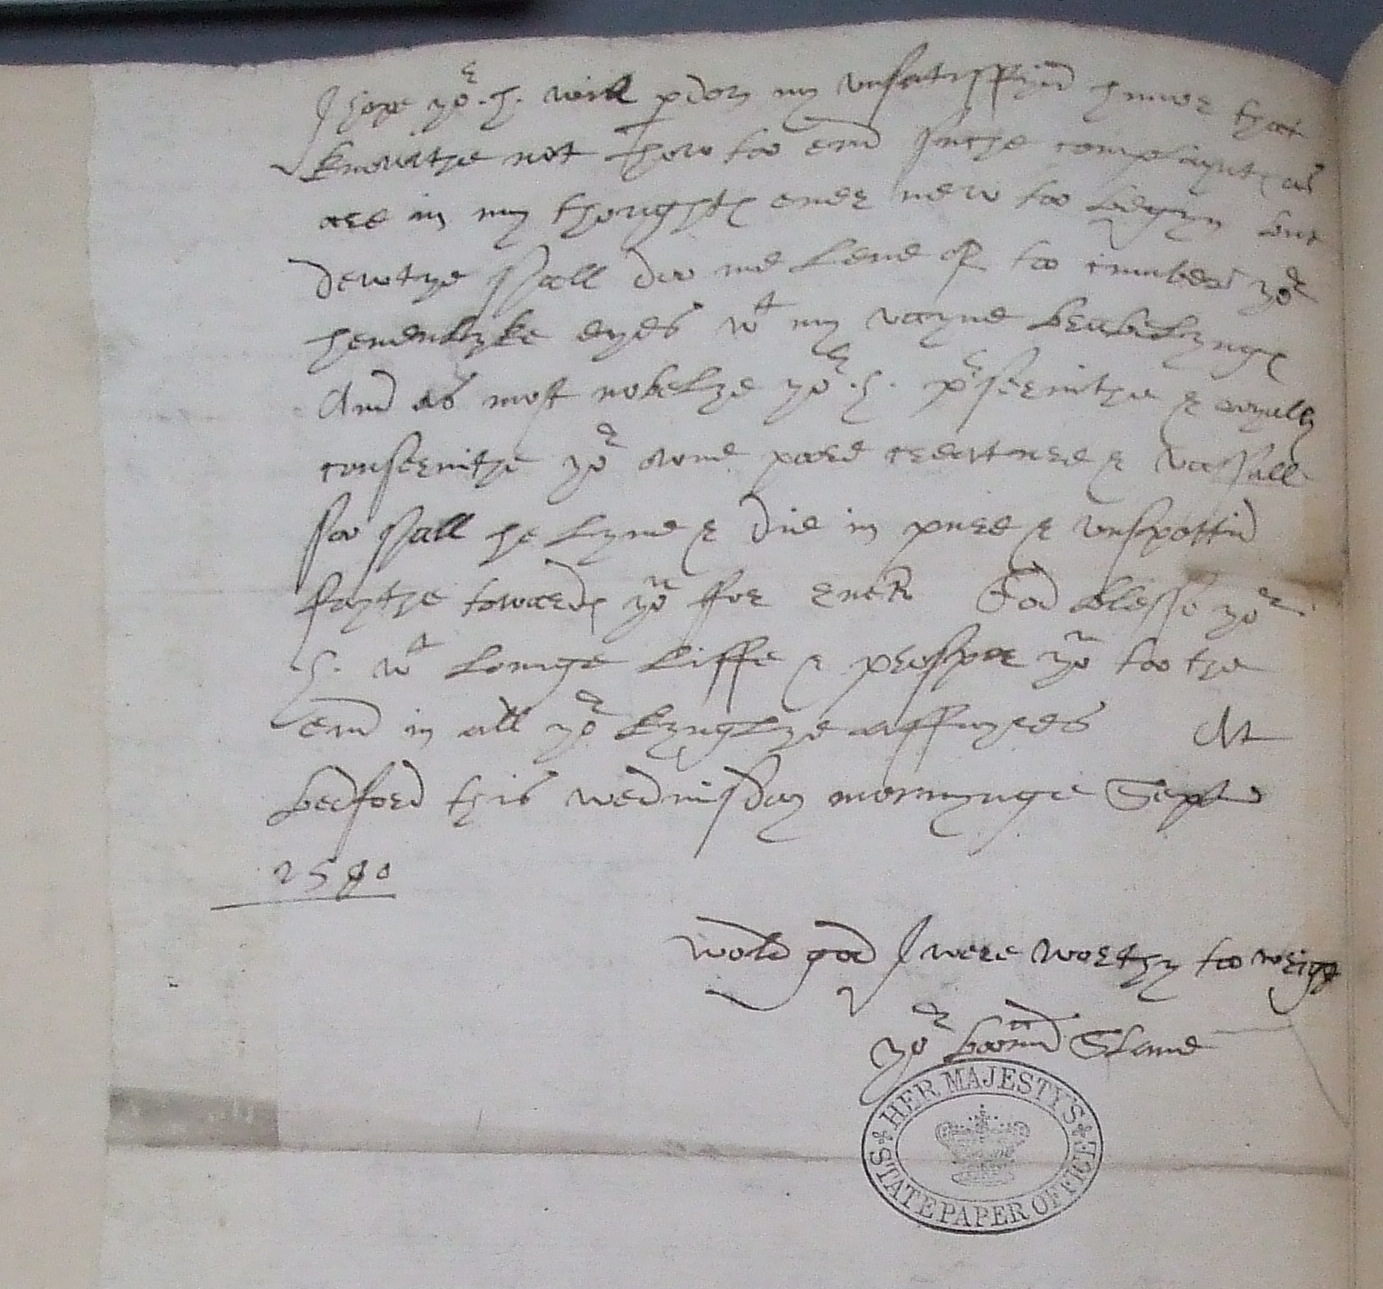 I hope yor .h. will pdon my unsatisffyind humor that
knowithe not how too end suche complaynts as
are in my thoughts ever new too begyn but
dewtye shall doo me leve of too cumber yor
hevenlyke eyes wt my vayne
And as most nobelye yor .h. prservithe & royally
conservithe yor owne pore creature & vassall
soo shall he lyve & die in pure & unspottid
faythe towards yow ffor ever God blesse yor
h. wt longe liffe & prosper yow too the
end in all yor kynglye affayres At
bedford this wednisday mornynge Sept
1580
wold god I were worthy too
yor bound Slave
HER MAJESTY'S STATE PAPER OFFICE